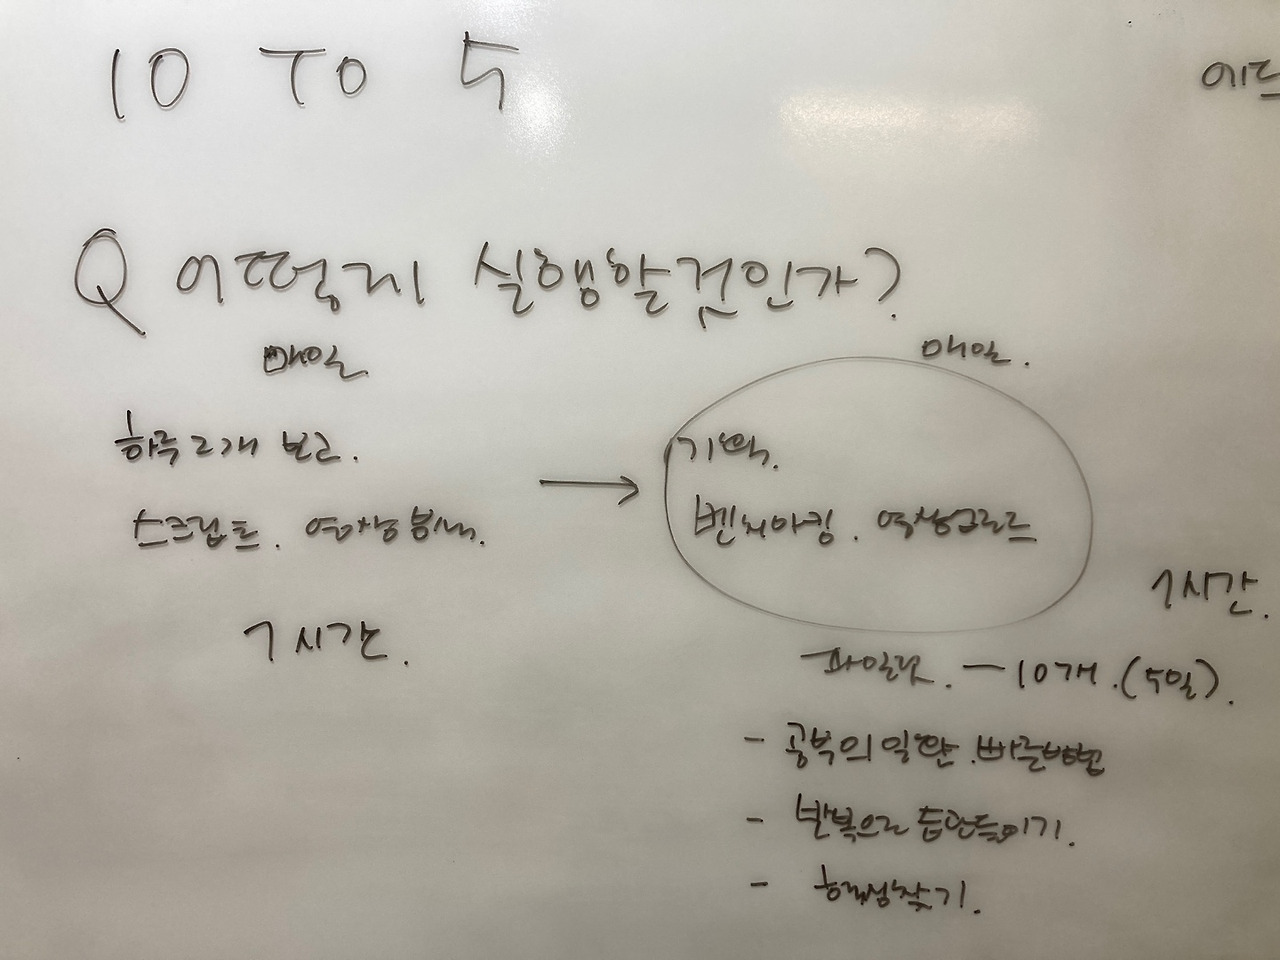 10 TO 5
Q 어떻게 실행할것인가?
매일
하루 2개 보고.
스크립트. 영상분석.
1시간.
매일.
기획.
벤치마킹. 영상업로드
1시간.
파일럿. - 10개. (5일).
- 공부의 일환. 빠른방법
- 반복으로 습관들이기.
- 찾기.